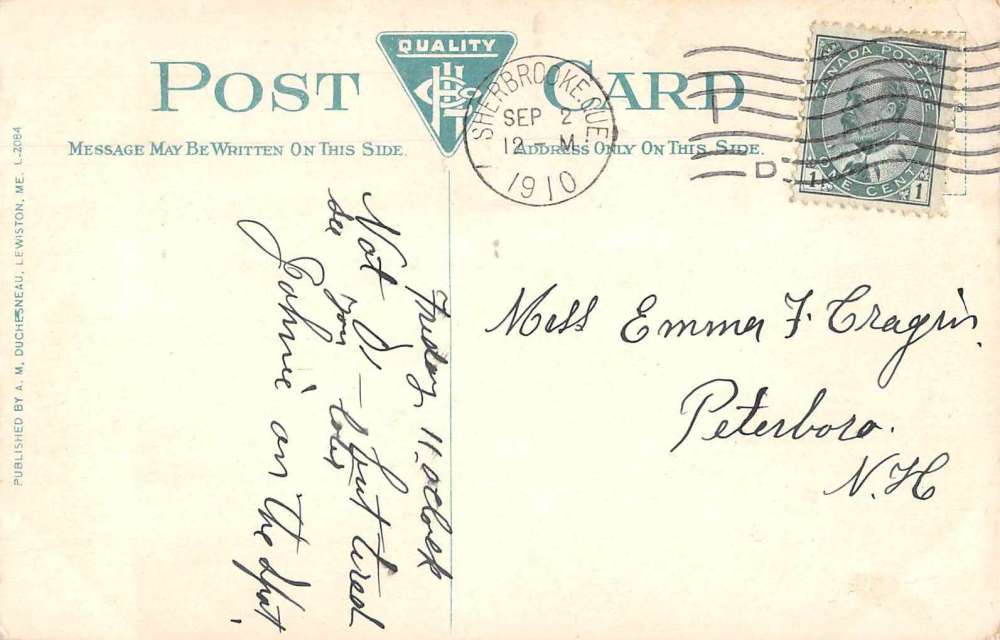 QUALITY
POST CARD
MESSAGE MAY BE WRITTEN ON THIS SIDE.
ADDRESS ONLY ON THIS SIDE.
SHERBROOKE. QUE.
SEP 2
12 - M
1910
D
CANADA POSTAGE
ONE CENT
1 1
PUBLISHED BY A. M. DUCHESNEAU, LEWISTON, ME. L-2084
Friday 11 oclock
Not I - but tired
see you later
Johnie on the spot.
Miss Emma F. Cragin.
Peterboro.
N.H